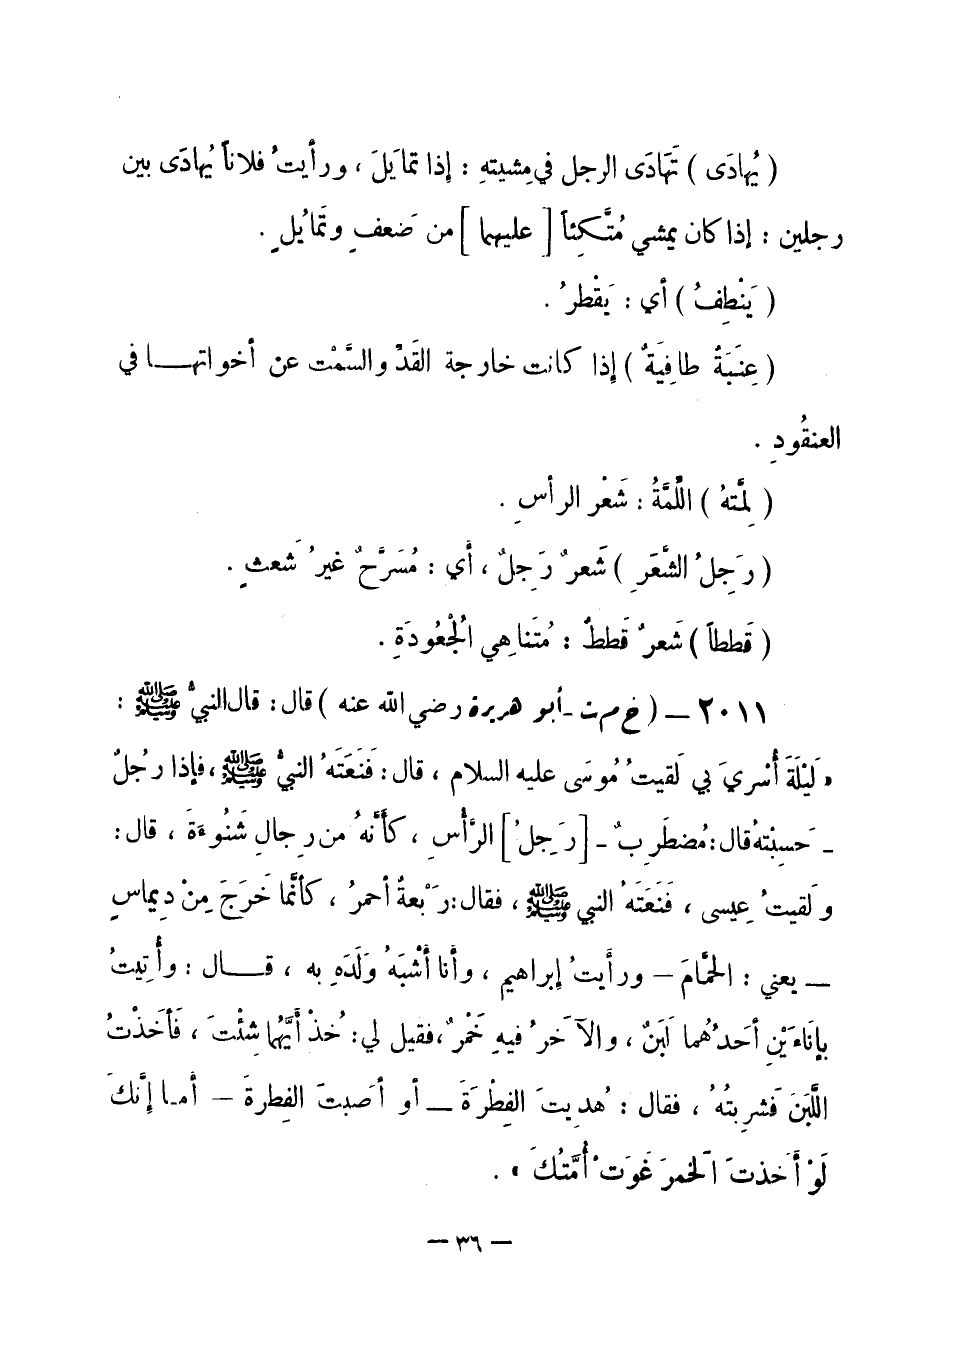 ( يُهادَى ) تَهَادَى الرجل في مِشيتهِ : إذا تمايَلَ ، ورأيتُ فلاناً يُهادَى بين
رجلين : إذا كان يمشي مُتَّكِئاً [ عليهما ] من ضَعفٍ وتَمَايُلٍ .
( يَنْطِفُ ) أي : يَقْطرُ .
( عِنَبَةٌ طافِيَةٌ ) إذا كانت خارجة القَدْ والسَّمْت عن أخواتهـــا في
العنقُودِ .
( لِمَّتهُ ) اللِّمَّةُ : شَعْر الرأسِ .
( رَجِلُ الشَّعَرِ ) شَعرٌ رَجِلٌ ، أَي : مُسَرَّحٌ غيرُ شَعثٍ .
( قَططاً ) شَعرٌ قَططٌ : مُتَناهِي الجُعُودَةِ .
٢٠١١ – ( خ م ت - أبو هريرة رضي الله عنه ) قال : قال النبيُّ ﷺ :
« لَيْلَةَ أُسْرِيَ بي لَقيتُ مُوسَى عليه السلام ، قال : فَنَعَتَهُ النبيُّ ﷺ ، فإذا رجُلٌ
ـ حَسِبْتهُ قال : مُضطَرِبٌ ـ [ رَجِلُ ] الرَّأْسِ ، كأَنَّهُ من رِجالِ شَنُوءَةَ ، قال :
ولَقيتُ عِيسى ، فَنَعَتَهُ النبي ﷺ ، فقال : رَبْعةٌ أحمرُ ، كأنَّما خَرَجَ مِنْ دِيماسٍ
– يعني : الحَمَّامَ – ورأَيتُ إبراهيم ، وأَنا أَشْبَهُ وَلَدَهِ به ، قـــال : وأُتِيتُ
بإنَاءَيْنِ أَحدُهُما لَبَنٌ ، والآخَرُ فيهِ خَمْرٌ ، فقيل لي : خُذْ أَيَّهُما شِئْتَ ، فَأَخَذْتُ
اللَّبَنَ فَشَرِبتُهُ ، فقال : هُدِيتَ الفِطْرَةَ – أو أَصَبتَ الفِطرةَ – أما إنَّكَ
لَوْ أَخَذتَ الخَمرَ غَوَتْ أُمَّتُكَ » .
– ٣٦ –